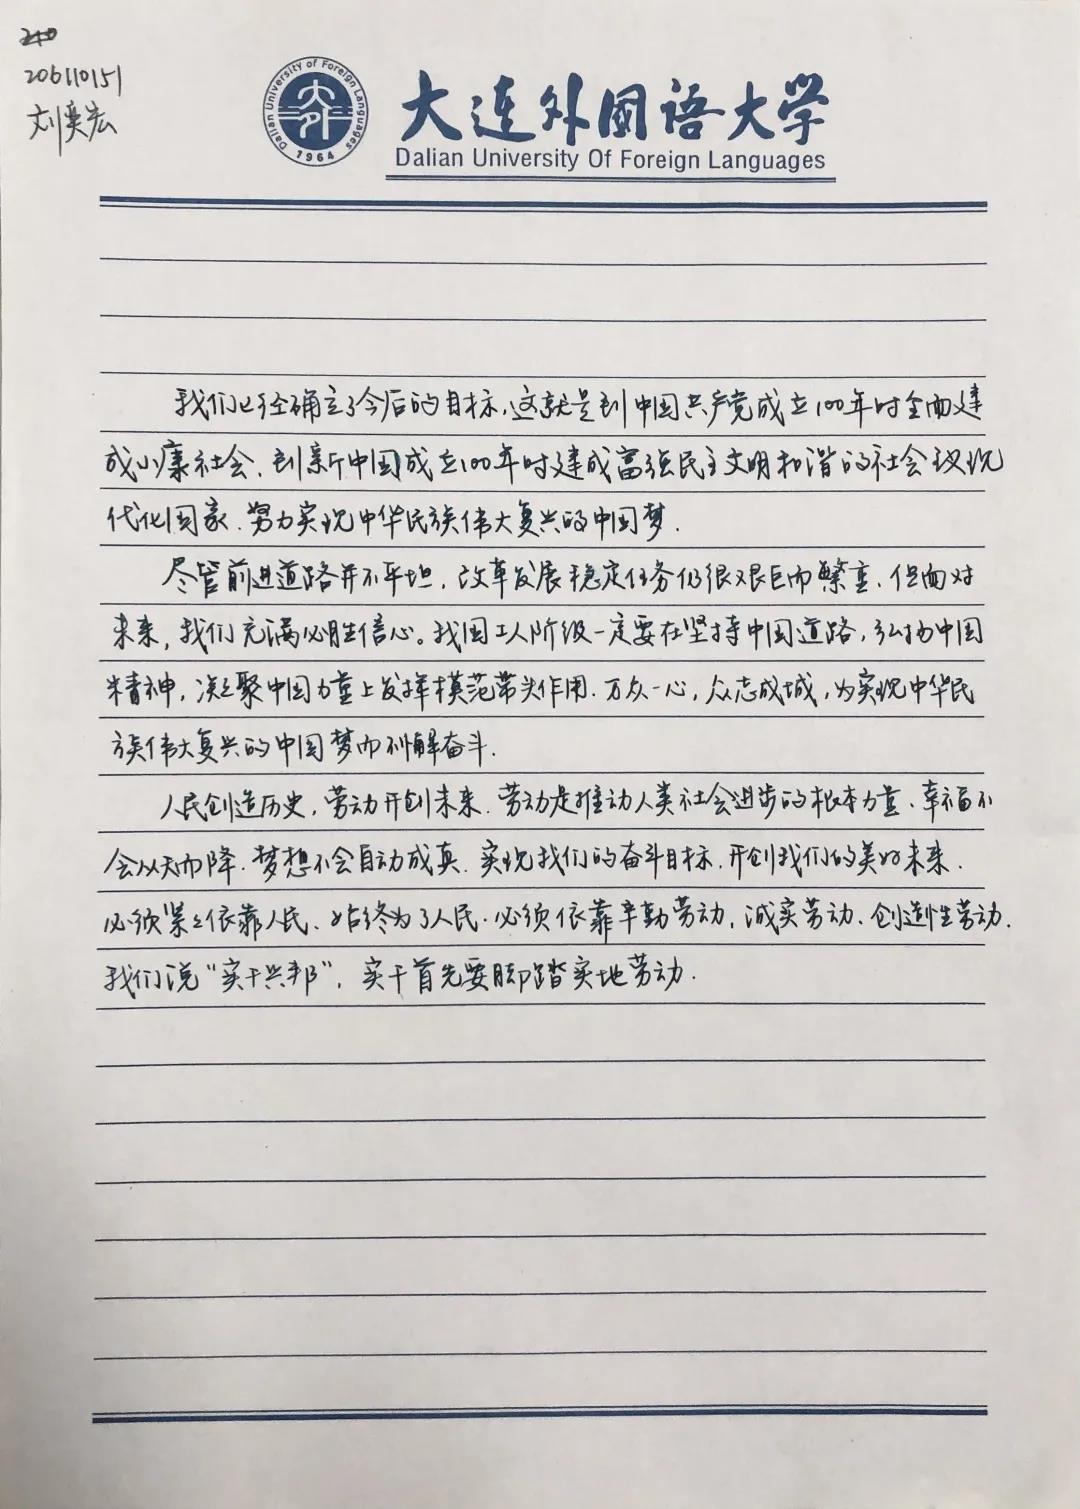 206110151
刘奕宏
Dalian University of Foreign Languages
大外
1964
大连外国语大学
Dalian University Of Foreign Languages
我们已经确立了今后的目标,这就是到中国共产党成立100年时全面建
成小康社会、到新中国成立100年时建成富强民主文明和谐的社会主义现
代化国家.努力实现中华民族伟大复兴的中国梦.
尽管前进道路并不平坦,改革发展稳定任务仍很艰巨而繁重、但面对
未来,我们充满必胜信心。我国工人阶级一定要在坚持中国道路,弘扬中国
精神,凝聚中国力量上发挥模范带头作用.万众一心,众志成城,为实现中华民
族伟大复兴的中国梦而不懈奋斗.
人民创造历史,劳动开创未来.劳动是推动人类社会进步的根本力量、幸福不
会从天而降.梦想不会自动成真.实现我们的奋斗目标.开创我们的美好未来.
必须紧紧依靠人民、始终为了人民.必须依靠辛勤劳动,诚实劳动、创造性劳动.
我们说“实干兴邦”,实干首先要脚踏实地劳动.